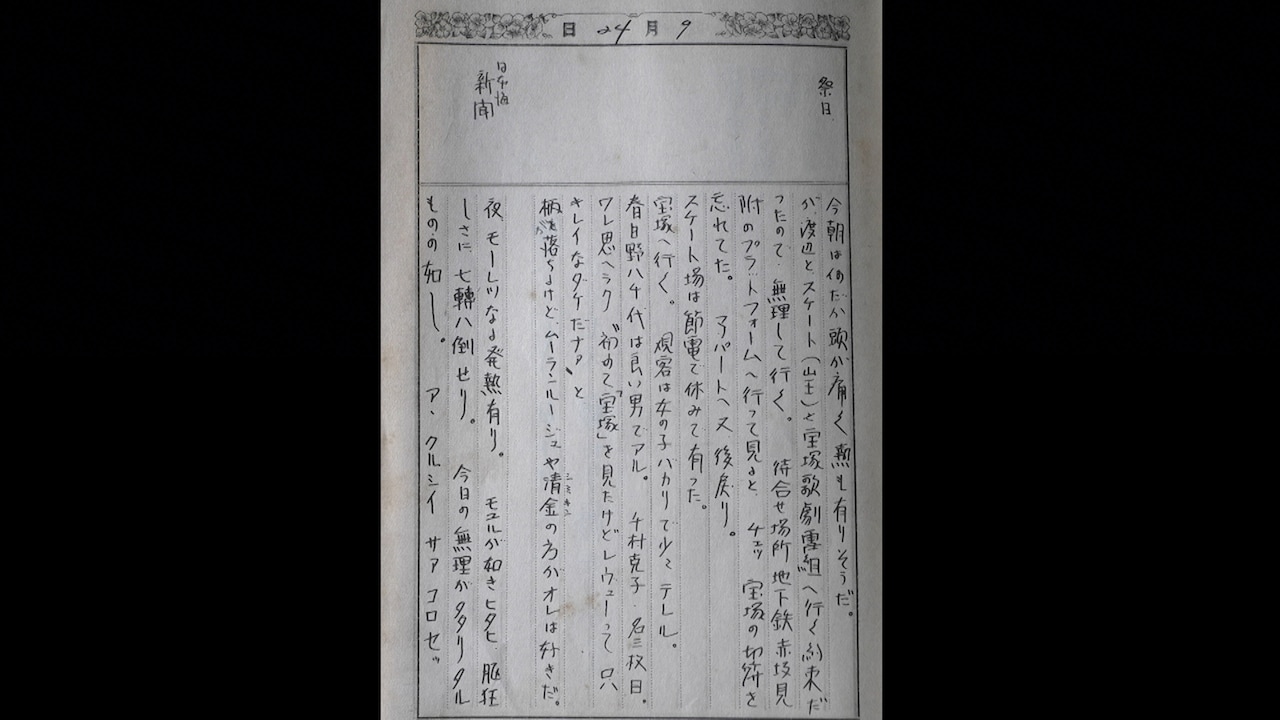 9月24日
祭日
日本海
新聞
今朝は何だか頭が痛く熱も有りそうだ。
が、渡辺とスケート(山王)と宝塚歌劇雪組へ行く約束だ
つたので、無理して行く。 待合せ場所 地下鉄赤坂見
附のプラットフォームへ行って見ると、チェッ 宝塚の切符を
忘れてた。 アパートへ又後戻り。
スケート場は節電で休みで有った。
宝塚へ行く。 観客は女の子バカリで少々テレル。
春日野八千代は良い男でアル。 千村克子・名三枚目。
ワレ思ヘラク〝初めて「宝塚」を見たけどレヴューって只
キレイなダケだナァ〟と
柄が落ちるけど、ムーランルージュや清金の方がオレは好きだ。
シミキン
夜、モーレツなる発熱有り。 モユルが如きヒタヒ、脳狂
しさに、七轉八倒せり。 今日の無理がタタリタル
ものの如し。 ア、クルシイ サアコロセッ